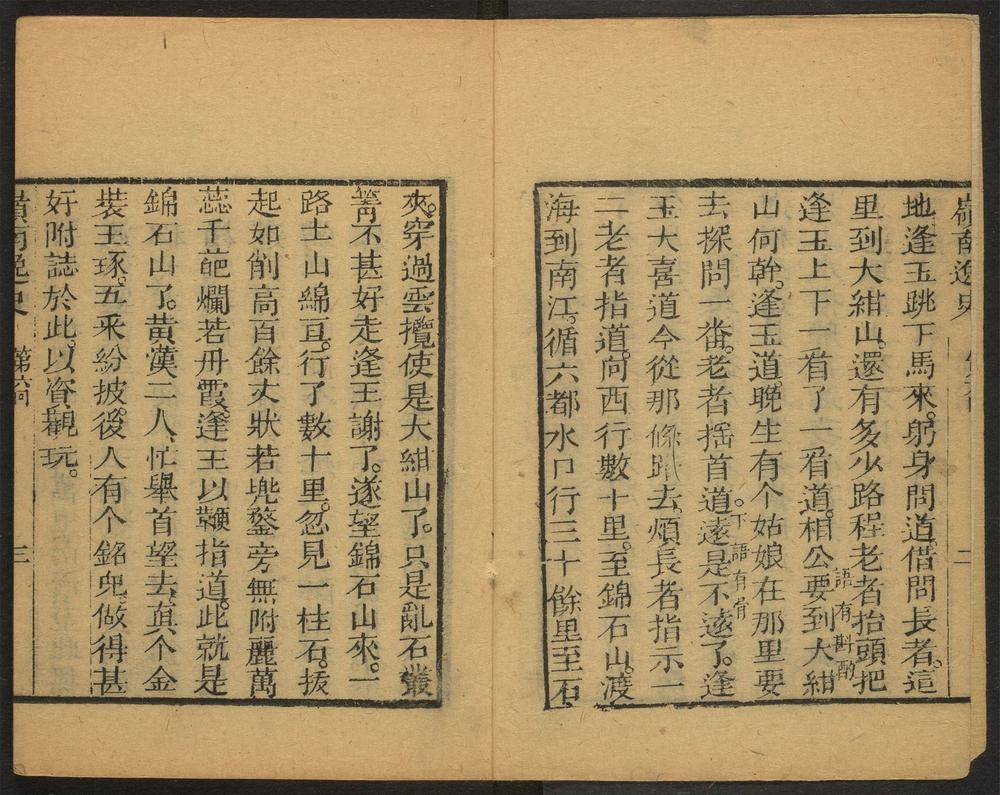 嶺南逸史
二
地逢玉跳下馬來。躬身問道。借問長者。這
里到大紺山。還有多少路程老者抬頭把
語有斟酌
逢玉上下一看了一看道。相公要到大紺
山何幹。逢玉道。晚生有个姑娘在那里要
下語有骨
去探問一番。老者搖首道。遠是不遠了。逢
玉大喜道今從那條路去。煩長者指示一
二老者指道。向西行數十里。至錦石山。渡
海到南江。循六都水口行三十餘里至石
來。穿過雲攬使是大紺山了。只是亂石叢
箐。不甚好走逢玉謝了。遂望錦石山來。一
路土山綿亘。行了數十里。忽見一柱石。拔
起如削高百餘丈狀若兜鍪旁無附麗萬
蕊千葩爛若丹霞。逢玉以鞭指道。此就是
錦石山了。黃漢二人、忙舉首望去、眞个金
裝玉琢。五釆紛披。後人有个銘兜。做得甚
好附誌於此。以資觀玩。
嶺南逸史
第六回
三